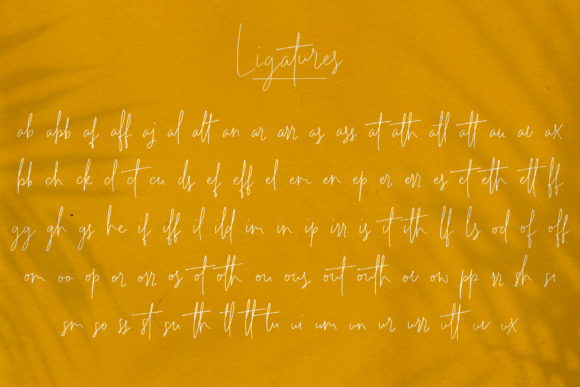 Ligatures
ab abb af aff aj al alt an ar arr as ass at ath all att au av ax
bb ch ck cl ct cu ds ef eff el em en ep er err es et eth ett ff
gg gh gs he if iff il ild im in ip irr is it ith lf ls od of off
om oo op or orr os ot oth ou ous out outh ov ow pp rr sh si
sm so ss st su th tl tt tu ui um un ur urr utt uv ux